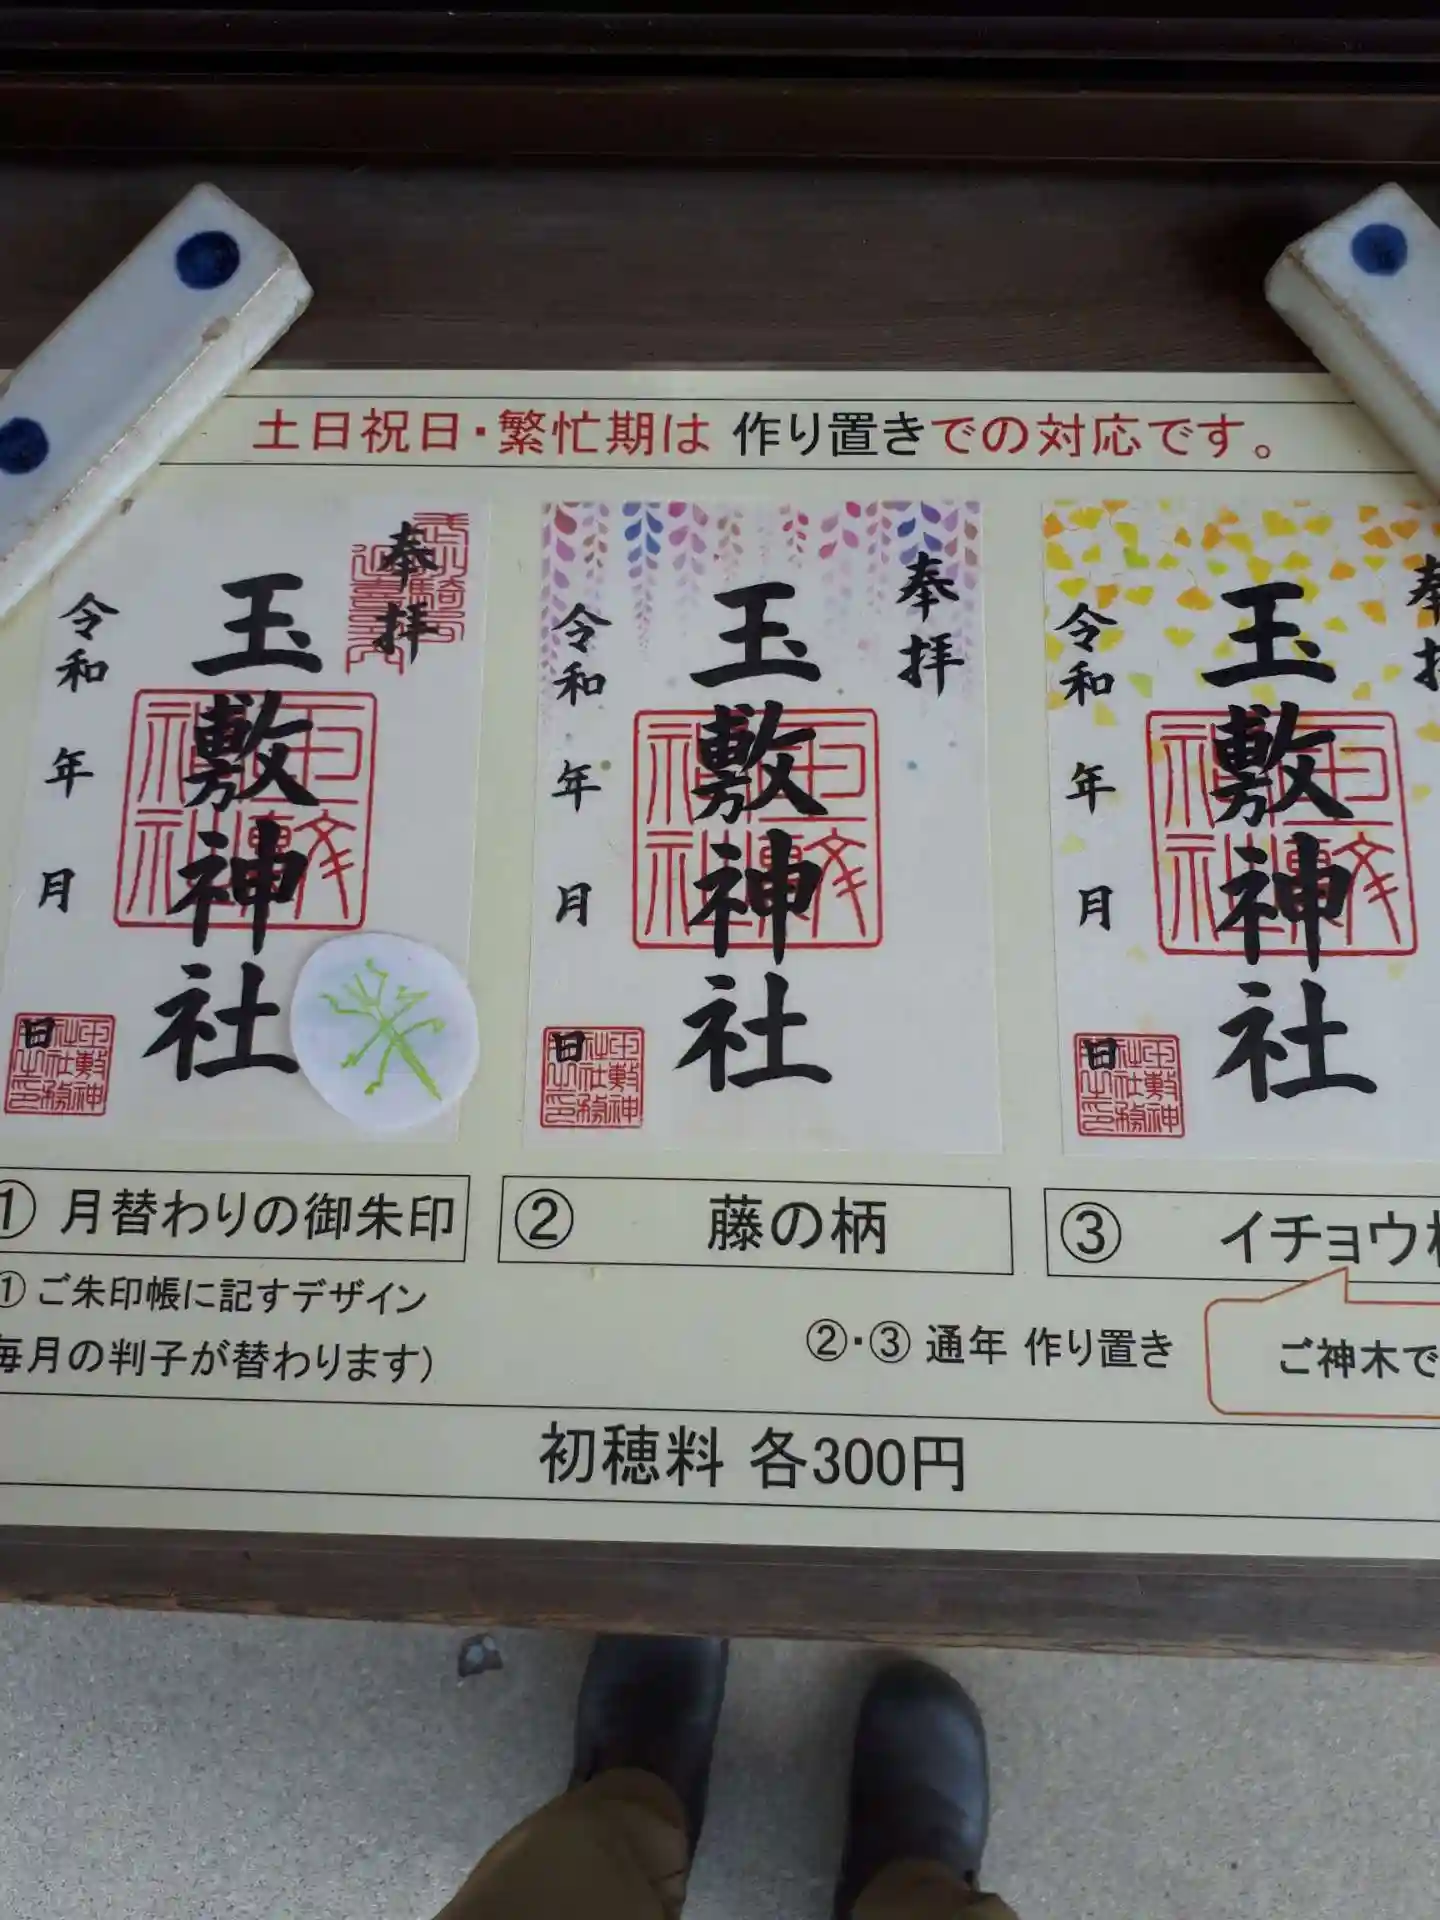 土日祝日・繁忙期は 作り置きでの対応です。
奉拝
玉敷神社
令和 年 月 日
奉拝
玉敷神社
令和 年 月 日
奉拝
玉敷神社
令和 年 月 日
① 月替わりの御朱印
② 藤の柄
③ イチョウ
① ご朱印帳に記すデザイン
毎月の判子が替わります)
②・③ 通年 作り置き
ご神木で
初穂料 各300円